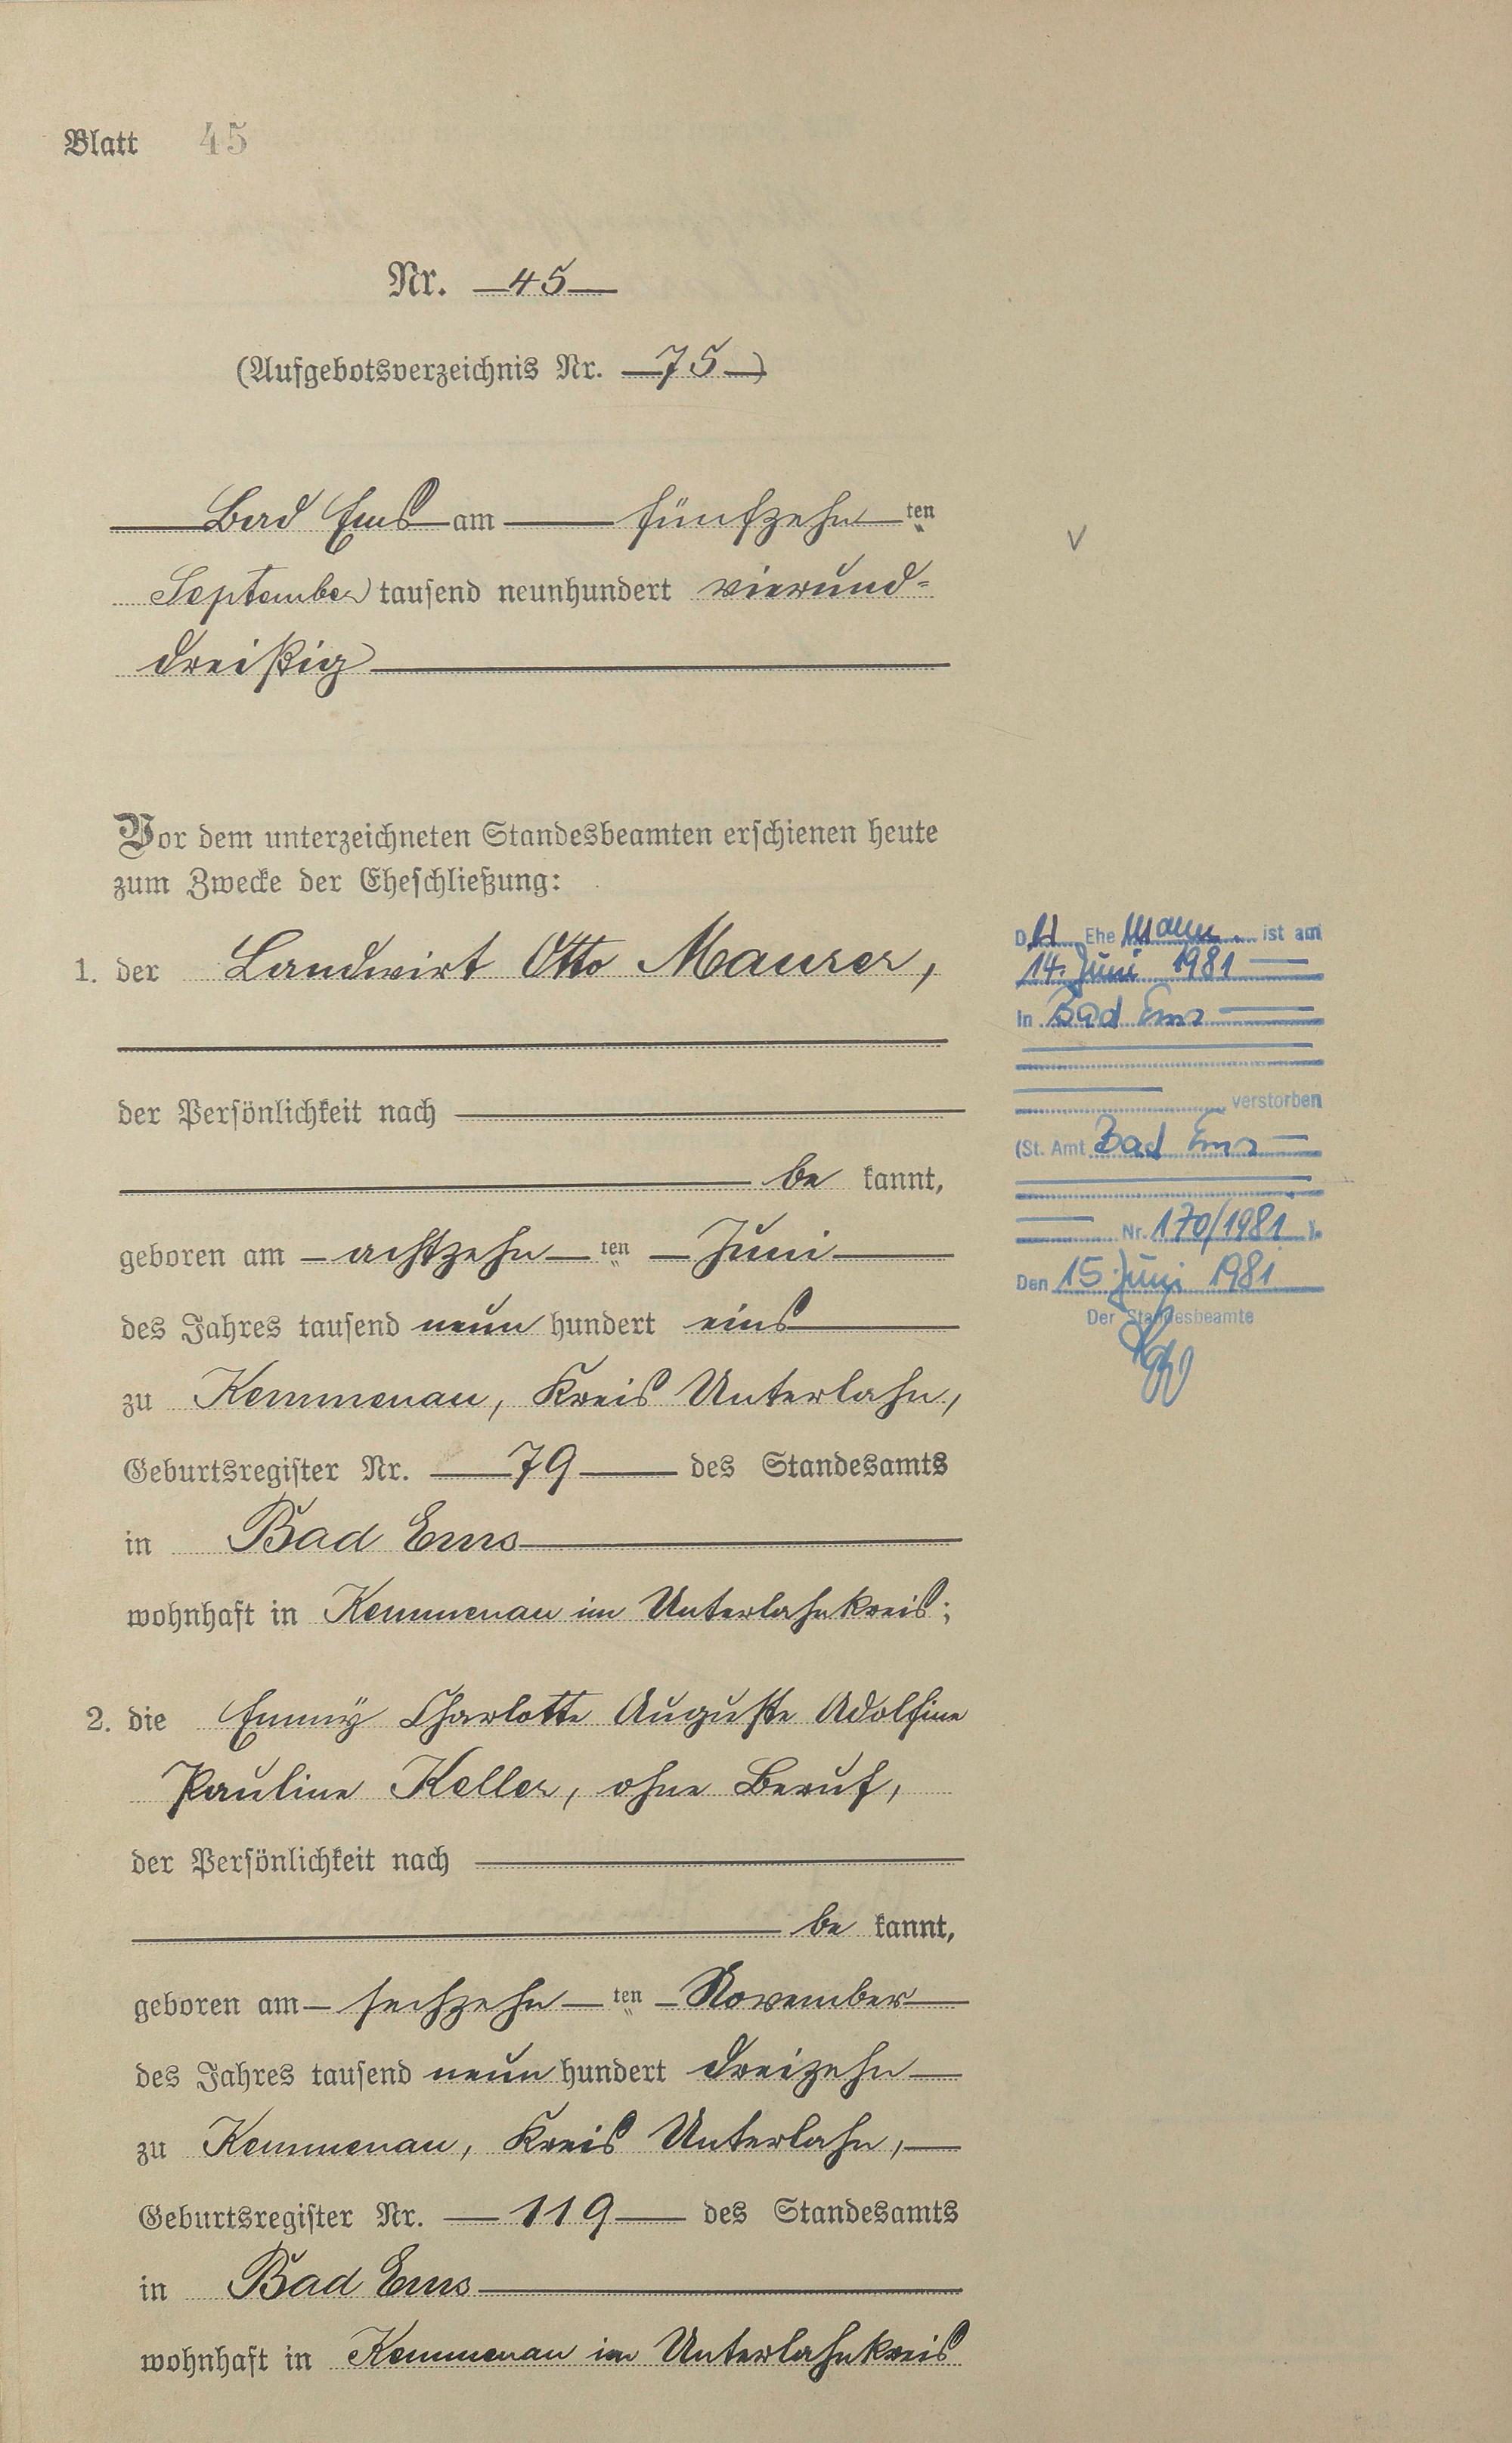 Blatt 45
Nr. 45
(Aufgebotsverzeichnis Nr. 75)
Bad Ems am fünfzehn ten
September tausend neunhundert vierund-
dreißig
Vor dem unterzeichneten Standesbeamten erschienen heute
zum Zwecke der Eheschließung:
1. der Landwirt Otto Maurer,
der Persönlichkeit nach
be kannt,
geboren am achtzehn ten Juni
des Jahres tausend neun hundert eins
zu Kemmenau, Kreis Unterlahn,
Geburtsregister Nr. 79 des Standesamts
in Bad Ems
wohnhaft in Kemmenau im Unterlahnkreis;
2. die Emmy Charlotte Auguste Adolfine
Pauline Keller, ohne Beruf,
der Persönlichkeit nach
be kannt,
geboren am sechzehn ten November
des Jahres tausend neun hundert dreizehn
zu Kemmenau, Kreis Unterlahn,
Geburtsregister Nr. 119 des Standesamts
in Bad Ems
wohnhaft in Kemmenau im Unterlahnkreis
Der Ehe Mann ist am
14. Juni 1981
in Bad Ems
verstorben
(St. Amt Bad Ems
Nr. 170/1981 ).
Den 15. Juni 1981
Der Standesbeamte